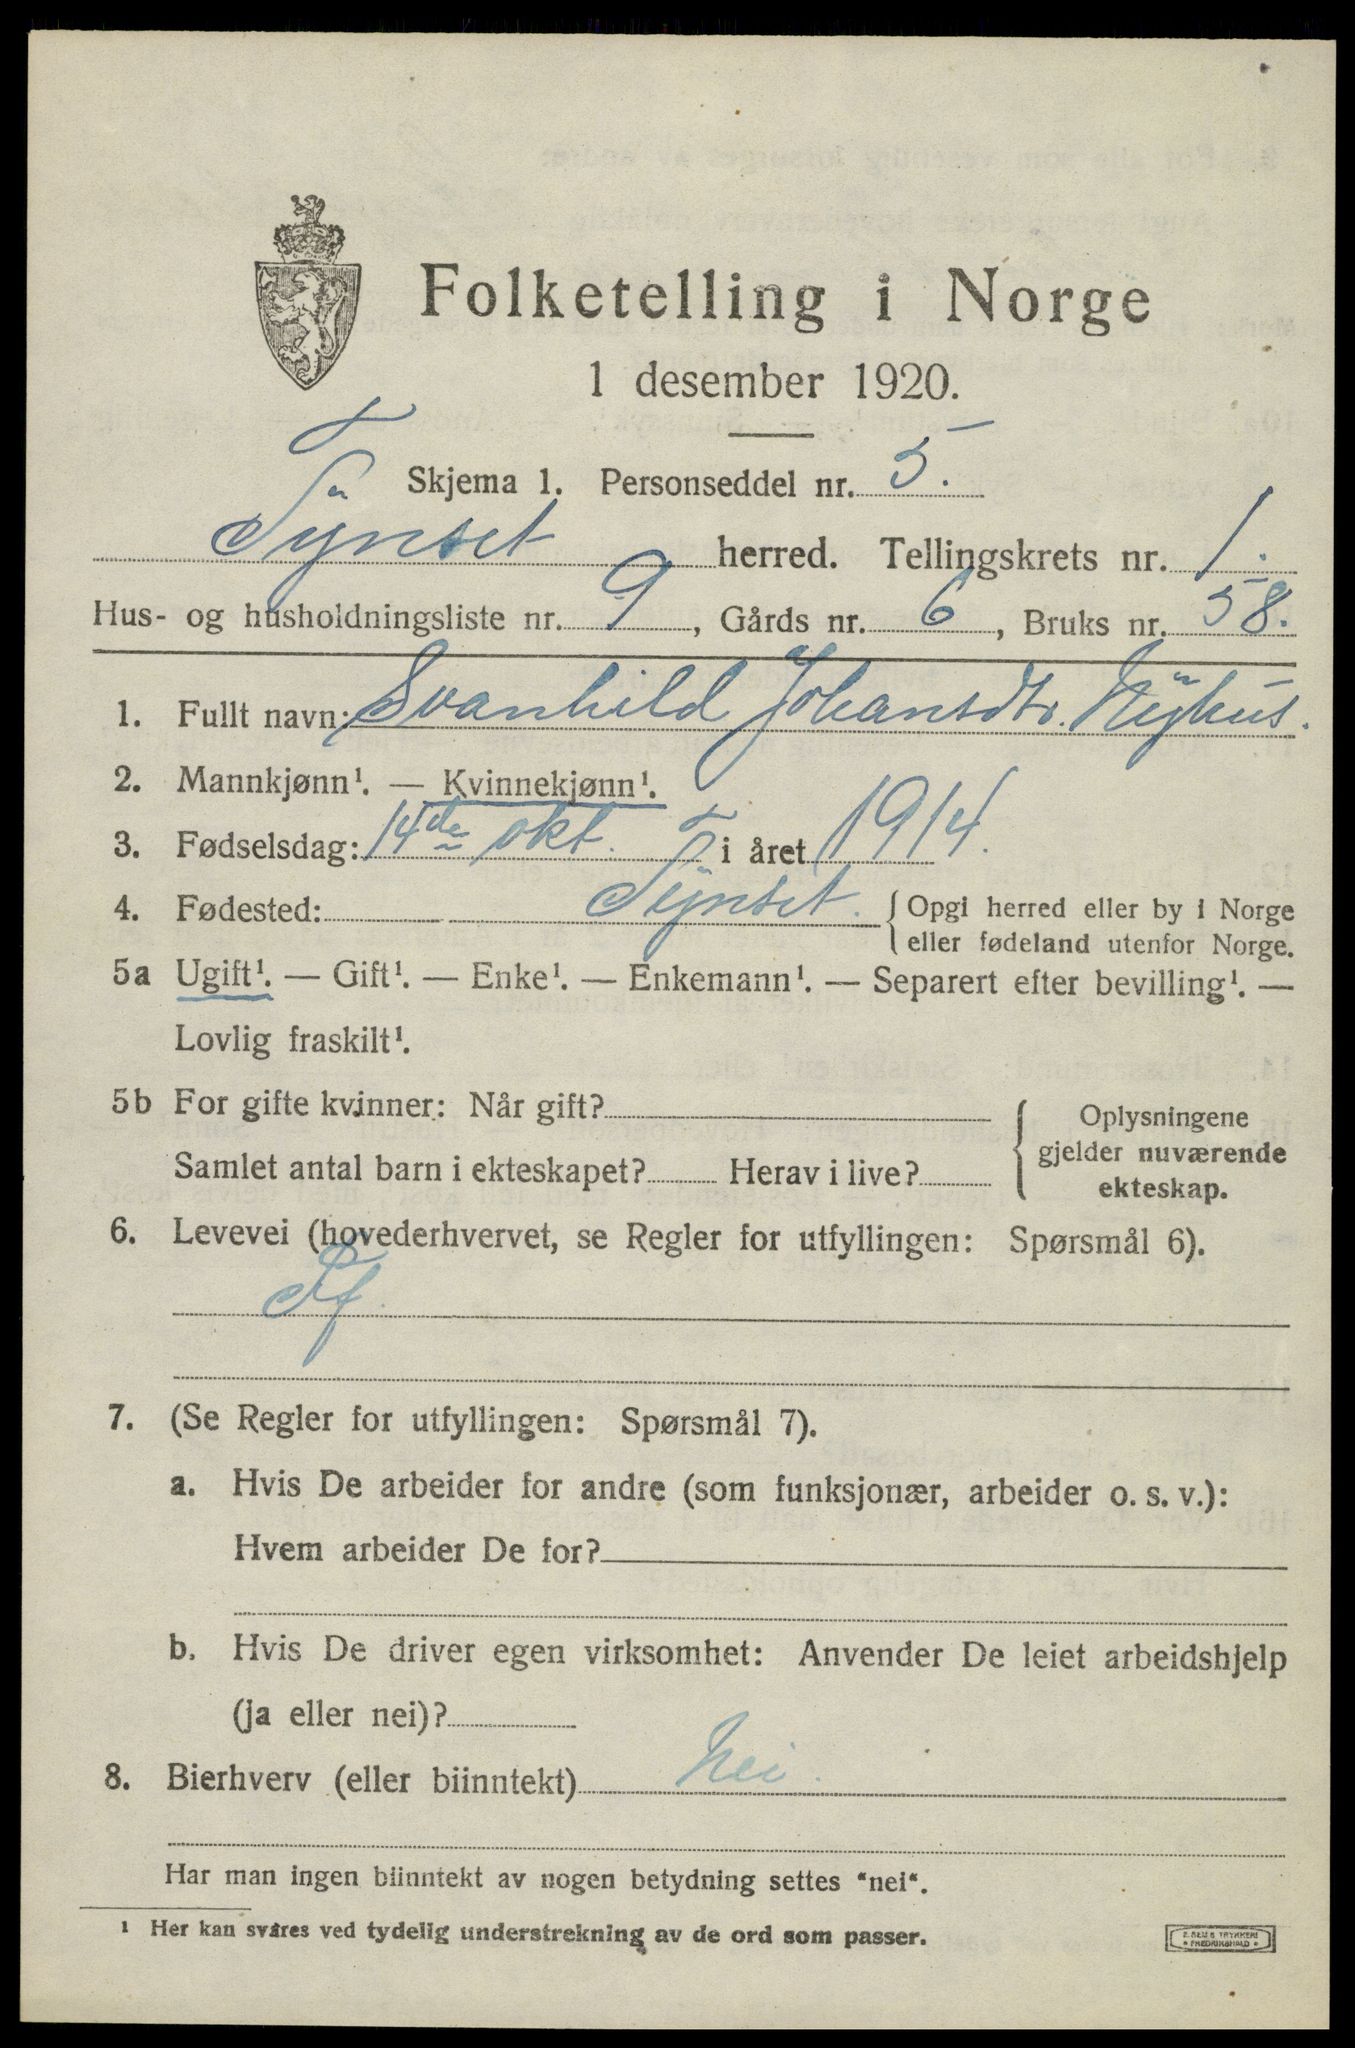 Folketelling i Norge
1 desember 1920.
Skjema 1. Personseddel nr. 5.
Tynset herred. Tellingskrets nr. 1.
Hus- og husholdningsliste nr. 9, Gårds nr. 6, Bruks nr. 58.
1. Fullt navn: Svanhild Johansdtr. Nÿhus.
2. Mannkjønn¹. — Kvinnekjønn¹.
3. Fødselsdag: 14de okt. i året 1914.
4. Fødested: Tynset. { Opgi herred eller by i Norge
eller fødeland utenfor Norge.
5a Ugift¹. — Gift¹. — Enke¹. — Enkemann¹. — Separert efter bevilling¹. —
Lovlig fraskilt¹.
5b For gifte kvinner: Når gift?
Samlet antal barn i ekteskapet? Herav i live?
{ Oplysningene
gjelder nuværende
ekteskap.
6. Levevei (hovederhvervet, se Regler for utfyllingen: Spørsmål 6).
7. (Se Regler for utfyllingen: Spørsmål 7).
a. Hvis De arbeider for andre (som funksjonær, arbeider o. s. v.):
Hvem arbeider De for?
b. Hvis De driver egen virksomhet: Anvender De leiet arbeidshjelp
(ja eller nei)?
8. Bierhverv (eller biinntekt) Nei.
Har man ingen biinntekt av nogen betydning settes "nei".
¹ Her kan svares ved tydelig understrekning av de ord som passer.